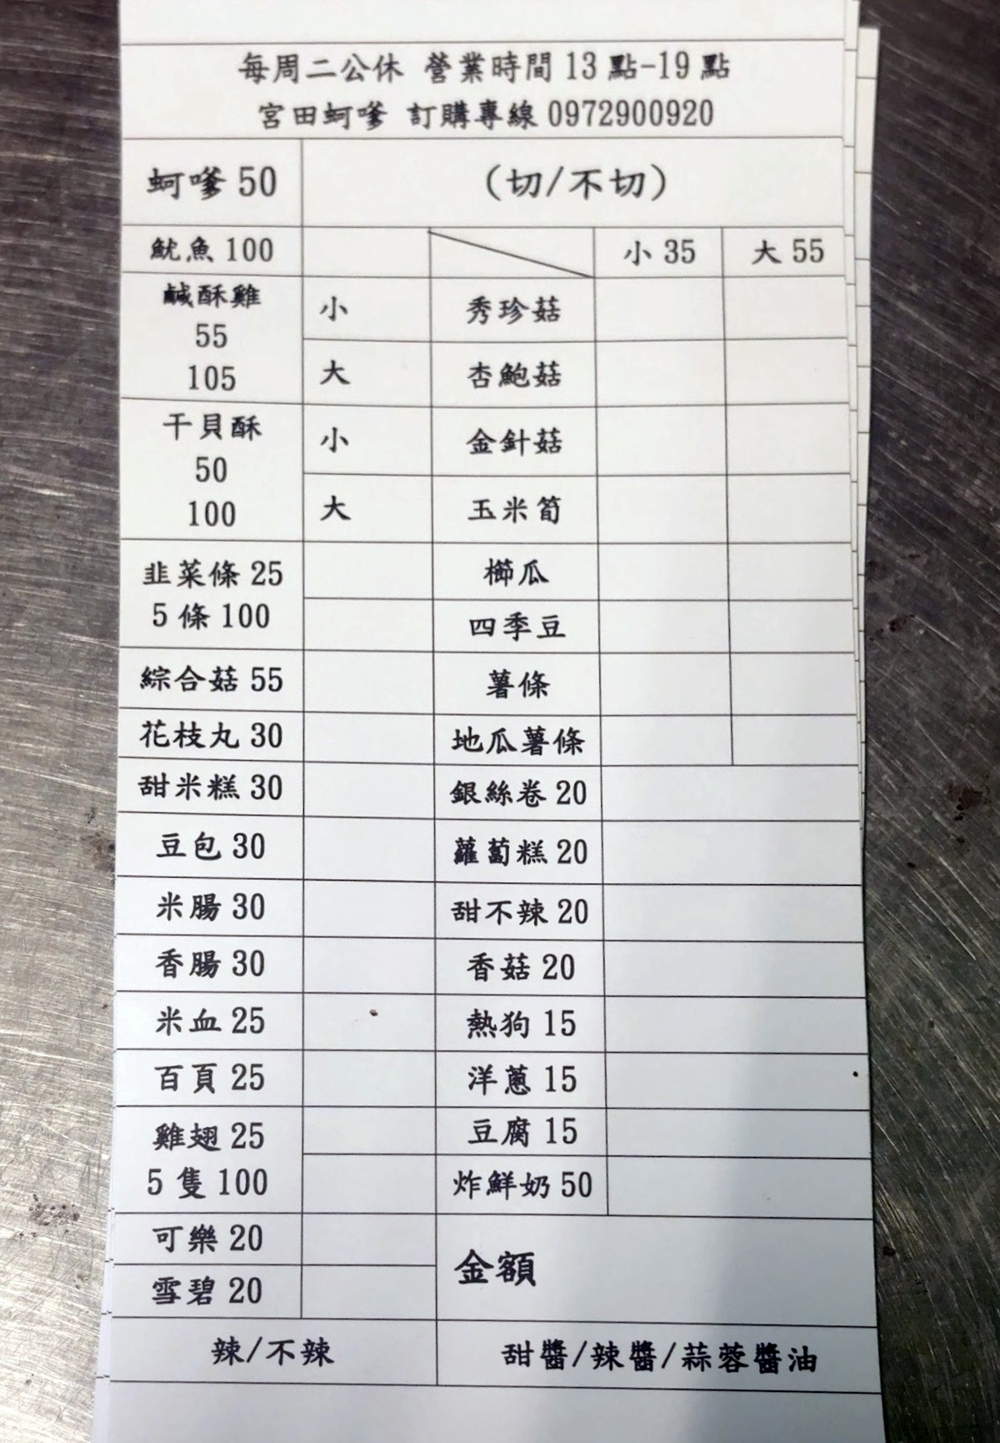 每周二公休 營業時間13點-19點
宮田蚵嗲 訂購專線0972900920
蚵嗲50 (切/不切)
魷魚100 小35 大55
鹹酥雞
55
105
小 秀珍菇
大 杏鮑菇
干貝酥
50
100
小 金針菇
大 玉米筍
韭菜條25
5條100
櫛瓜
四季豆
綜合菇55 薯條
花枝丸30 地瓜薯條
甜米糕30 銀絲卷20
豆包30 蘿蔔糕20
米腸30 甜不辣20
香腸30 香菇20
米血25 熱狗15
百頁25 洋蔥15
雞翅25 豆腐15
5隻100 炸鮮奶50
可樂20
雪碧20
金額
辣/不辣 甜醬/辣醬/蒜蓉醬油